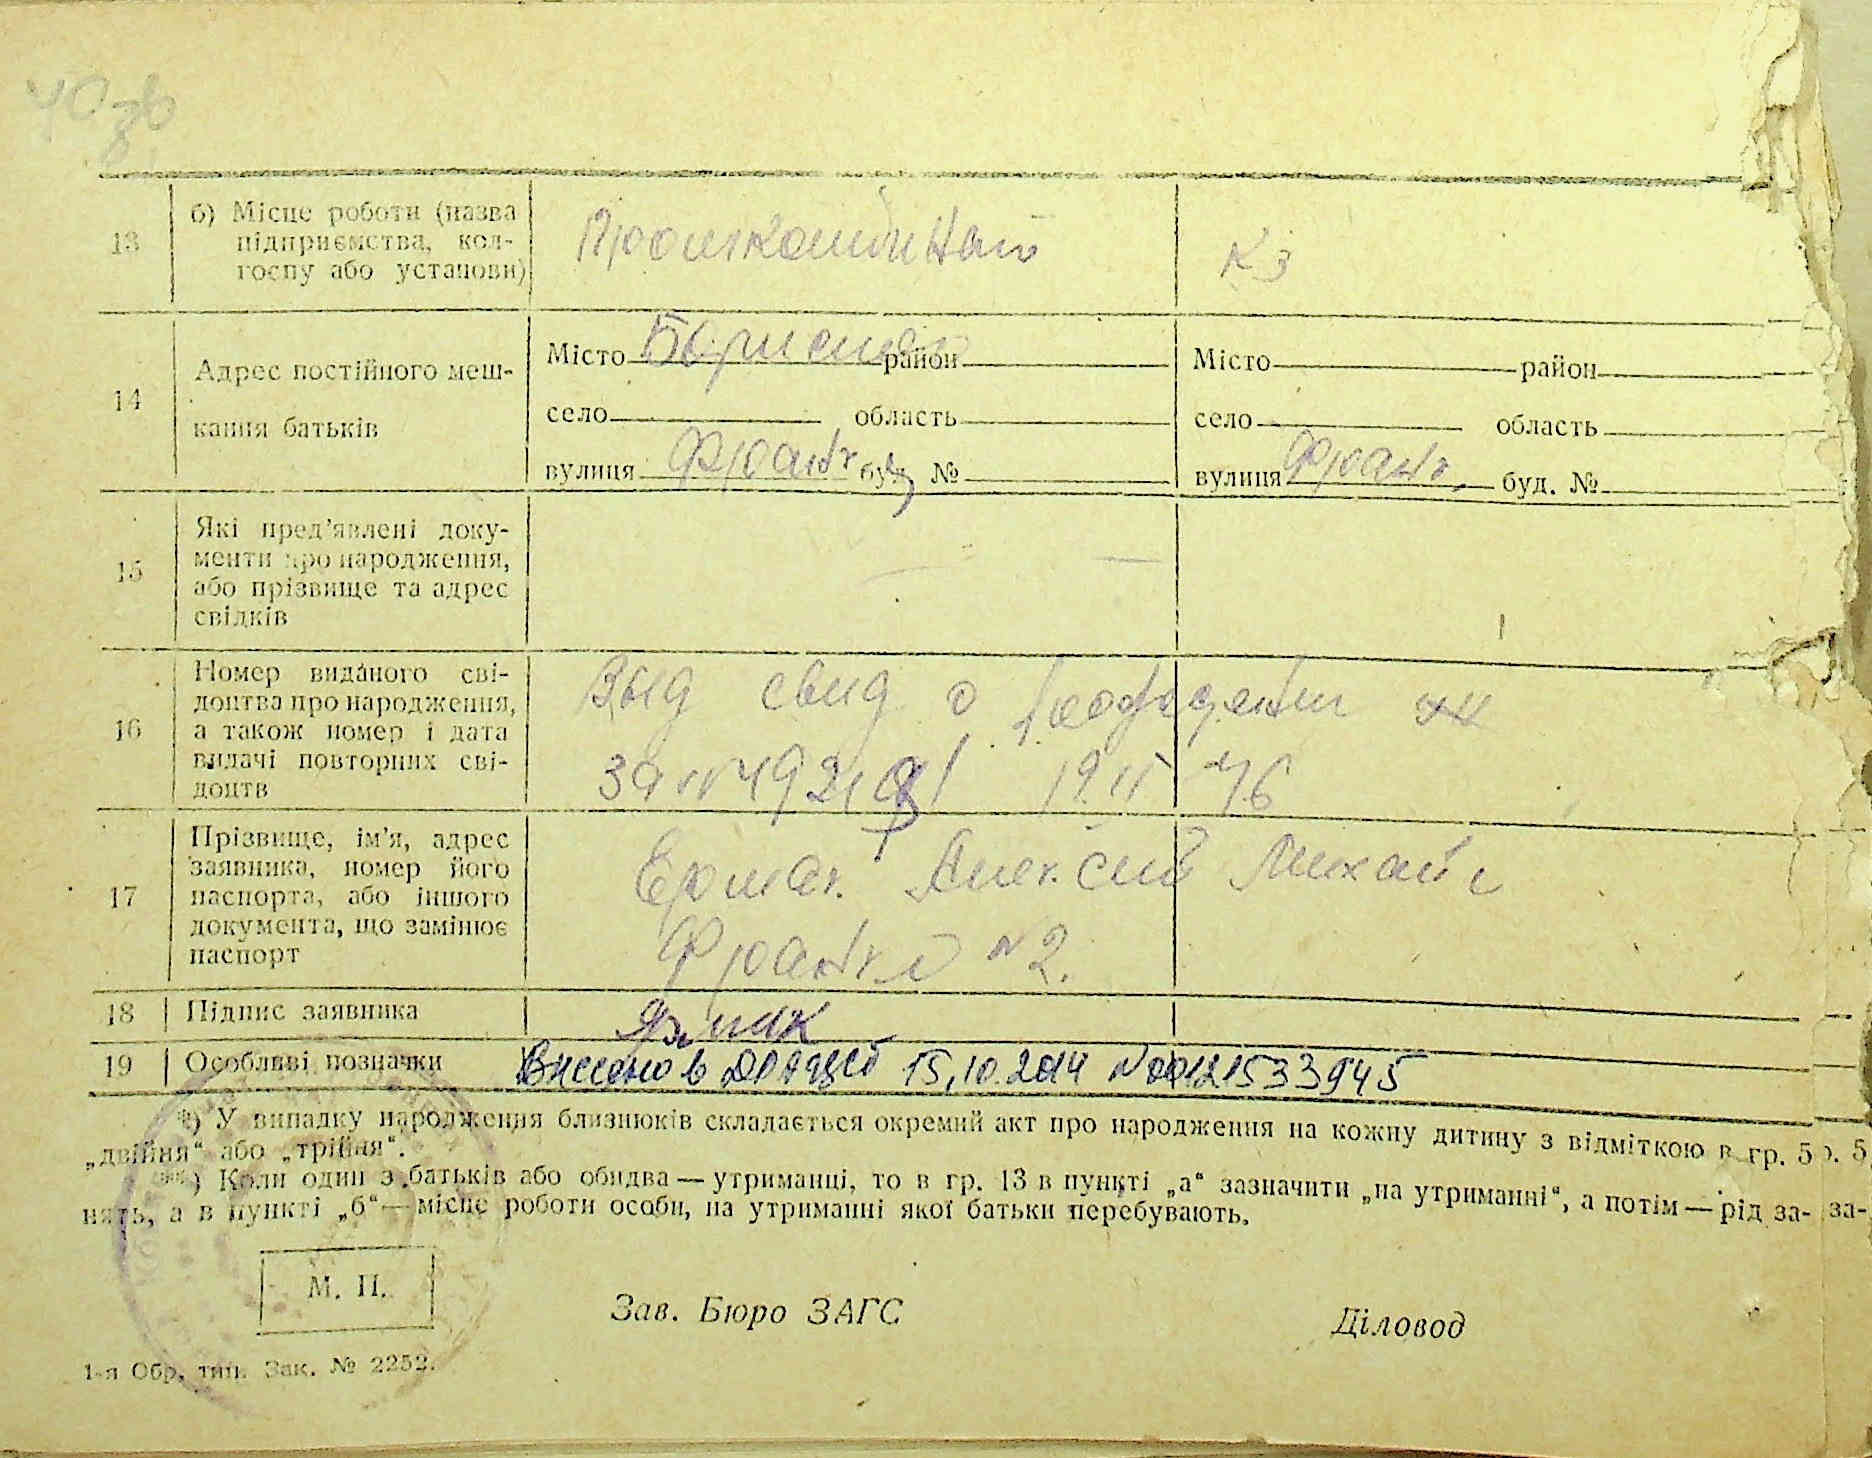 13
б) Місце роботи (назва
підприємства, кол-
госпу або установи)
Промкомбинат
КЗ
14
Адрес постійного меш-
кання батьків
Місто район
село область
вулиця Франк буд. №
Місто район
село область
вулиця Франк. буд. №
15
Які пред'явлені доку-
менти про народження,
або прізвище та адрес
свідків
16
Номер виданого сві-
доцтва про народження,
а також номер і дата
видачі повторних сві-
доцтв
Выд свид о
19 II 46
17
Прізвище, ім'я, адрес
заявника, номер його
паспорта, або іншого
документа, що замінює
паспорт
Ермак Алексей Михай
Франко №2.
18
Підпис заявника
19
Особливі позначки
Внесено в ДРАЦСГ 15.10.2014 №00121533945
*) У випадку народження близнюків складається окремий акт про народження на кожну дитину з відміткою в гр. 5
„двійня“ або „трійня“.
**) Коли один з батьків або обидва — утриманці, то в гр. 13 в пункті „а“ зазначити „на утриманні“, а потім — рід за-
нять, а в пункті „б“ — місце роботи особи, на утриманні якої батьки перебувають.
М. П.
Зав. Бюро ЗАГС
Діловод
1-я Обр. тип. Зак. № 2252.